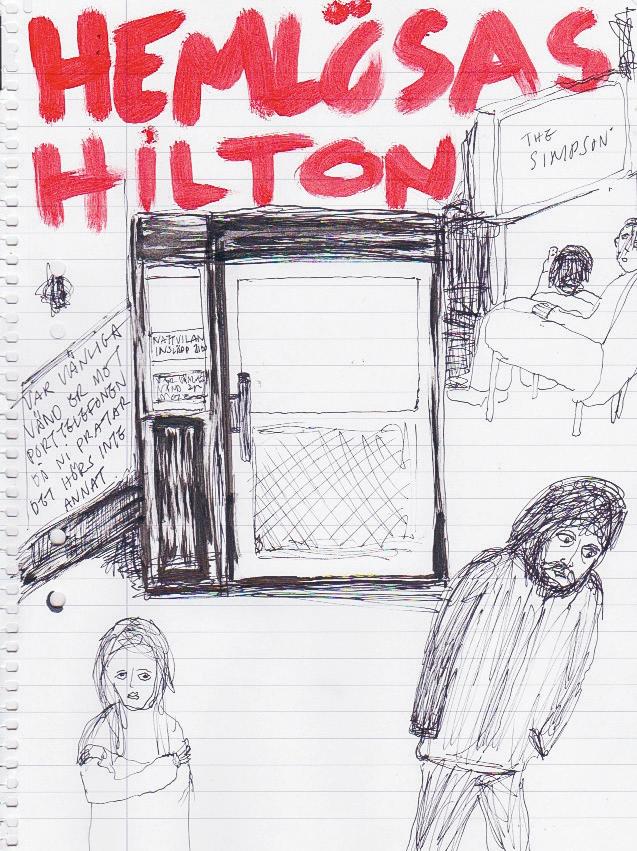 HEMLÖSAS
HILTON
THE
SIMPSON
NATTVILAN
INSLÄPP
VAR VÄNLIGA
VÄND ER MOT
PORTTELEFONEN
DÅ NI PRATAR
DET HÖRS INTE
ANNAT